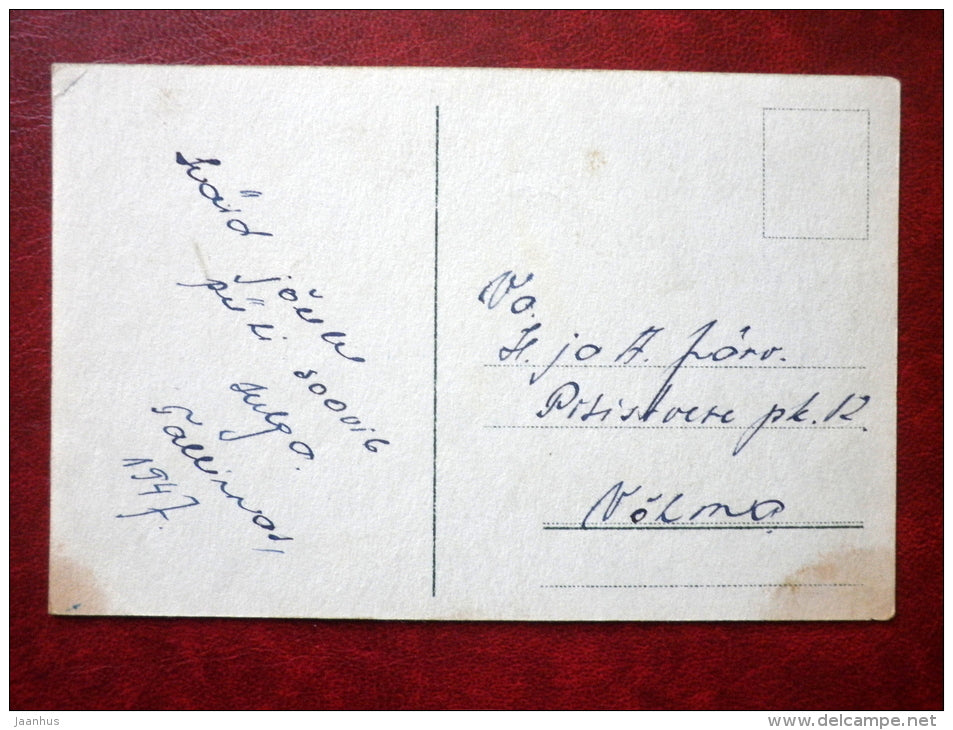 Häid jõulu
püki soovib
Helga.
Tallinnas,
1947.
Va.
H. ja A. Järv.
Pilistvere pk. 12
Võhma
Jaanhus
www.delcampe.net